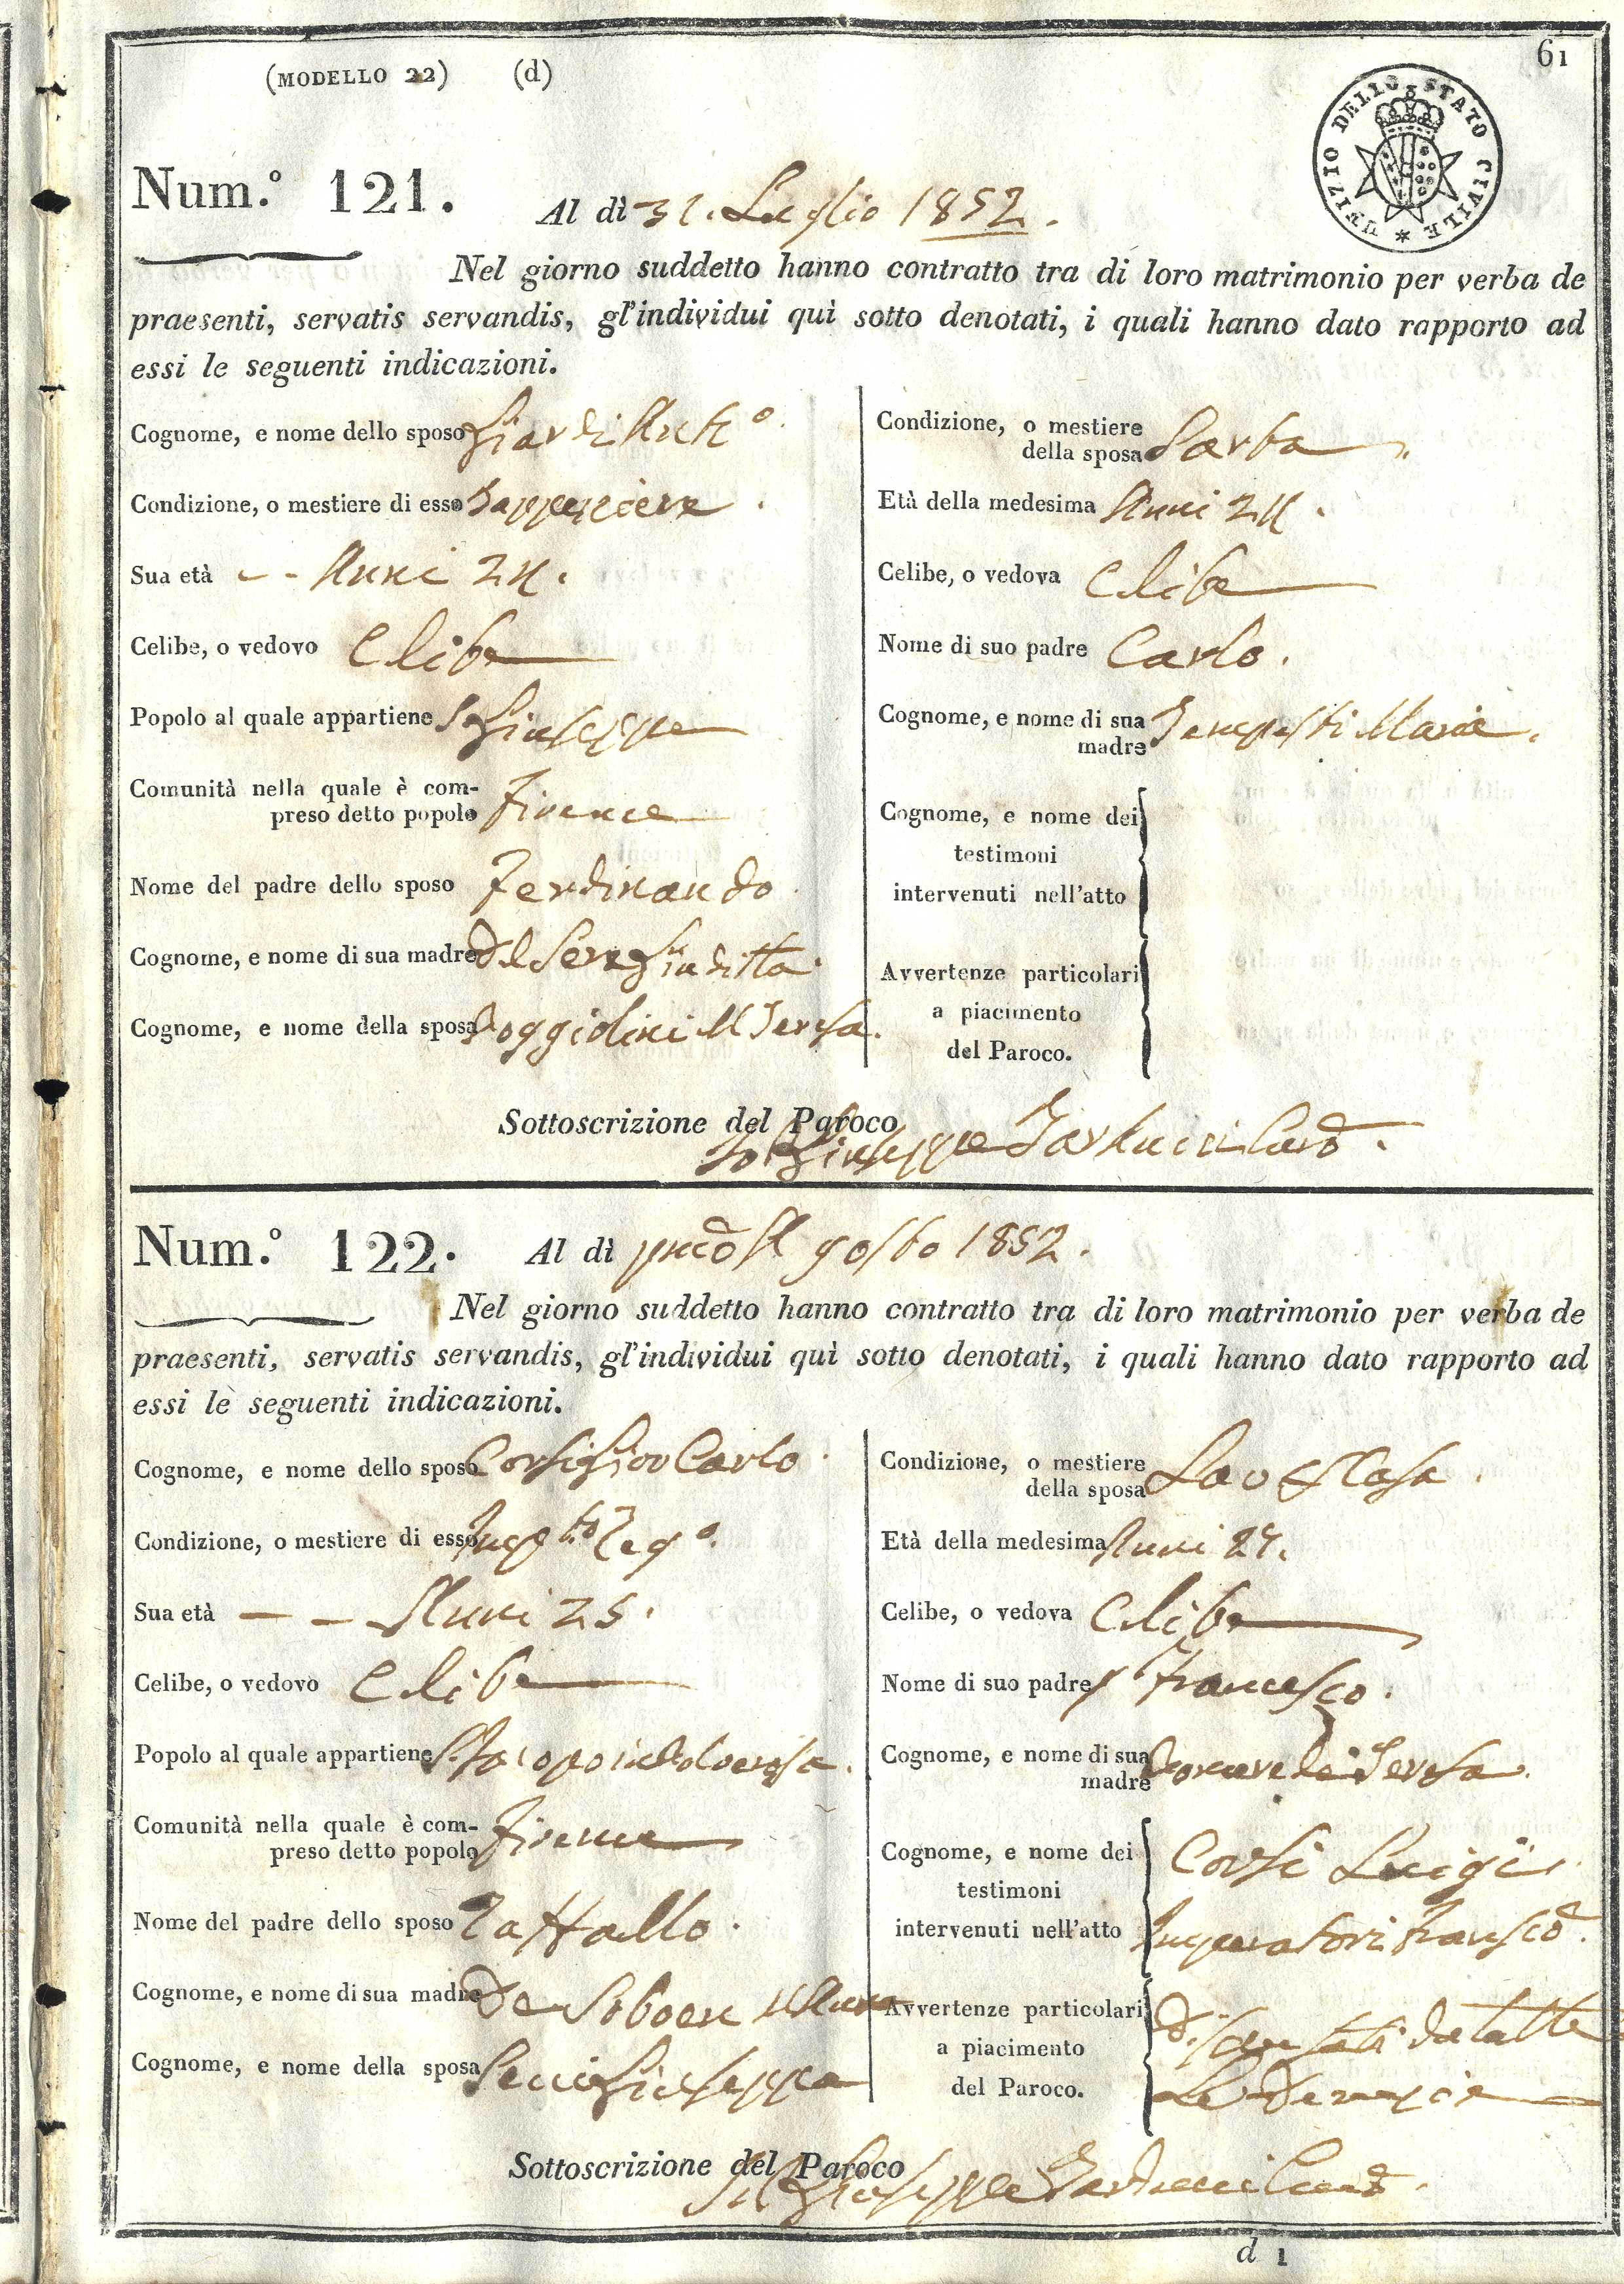 61
(MODELLO 22) (d)
UFIZIO DELLO STATO CIVILE
Num.º 121. Al dì 31. Luglio 1852.
Nel giorno suddetto hanno contratto tra di loro matrimonio per verba de
praesenti, servatis servandis, gl'individui quì sotto denotati, i quali hanno dato rapporto ad
essi le seguenti indicazioni.
Cognome, e nome dello sposo Giardi Antº
Condizione, o mestiere di esso Tappezziere.
Sua età -- Anni 24.
Celibe, o vedovo Clibe
Popolo al quale appartiene S Giuseppe
Comunità nella quale è com-
preso detto popolo Firence
Nome del padre dello sposo Ferdinando
Cognome, e nome di sua madre Del Sere Giuditta
Cognome, e nome della sposa Poggiolini M Teresa.
Condizione, o mestiere
della sposa Sarta
Età della medesima Anni 24.
Celibe, o vedova Clibe
Nome di suo padre Carlo.
Cognome, e nome di sua
madre Tempesti Maria.
Cognome, e nome dei
testimoni
intervenuti nell'atto
Avvertenze particolari
a piacimento
del Paroco.
Sottoscrizione del Paroco
Giuseppe Tarducci
Num.º 122. Al dì Agosto 1852.
Nel giorno suddetto hanno contratto tra di loro matrimonio per verba de
praesenti, servatis servandis, gl'individui quì sotto denotati, i quali hanno dato rapporto ad
essi le seguenti indicazioni.
Cognome, e nome dello sposo Corsi Giov Carlo
Condizione, o mestiere di esso Impto Regº.
Sua età -- Anni 25.
Celibe, o vedovo Clibe
Popolo al quale appartiene S. Jacopo
Comunità nella quale è com-
preso detto popolo Firence
Nome del padre dello sposo Raffaello.
Cognome, e nome di sua madre De
Cognome, e nome della sposa Giuseppa
Condizione, o mestiere
della sposa Casa.
Età della medesima Anni 27.
Celibe, o vedova Clibe
Nome di suo padre Francesco.
Cognome, e nome di sua
madre Teresa.
Cognome, e nome dei
testimoni
intervenuti nell'atto
Corsi Luigi
Imperatori Francscõ.
Avvertenze particolari
a piacimento
del Paroco.
Dispensati da tutte
Le Denunzie
Sottoscrizione del Paroco
Giuseppe Tarducci
d 1